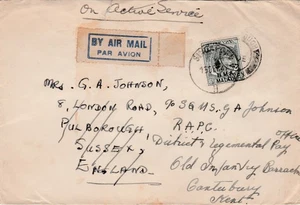 On Active Service
BY AIR MAIL
PAR AVION
Mrs. G. A. JOHNSON,
8, LONDON ROAD,
PULBOROUGH,
SUSSEX,
ENGLAND
℅ SQMS. G A Johnson
R.A.P.C.
District & Regimental Pay Office
Old Infantry Barracks
Canterbury
Kent